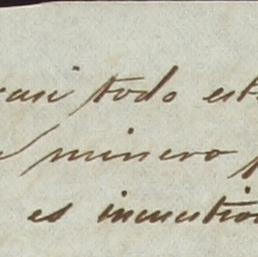 casi todo est
minero
es incuestion